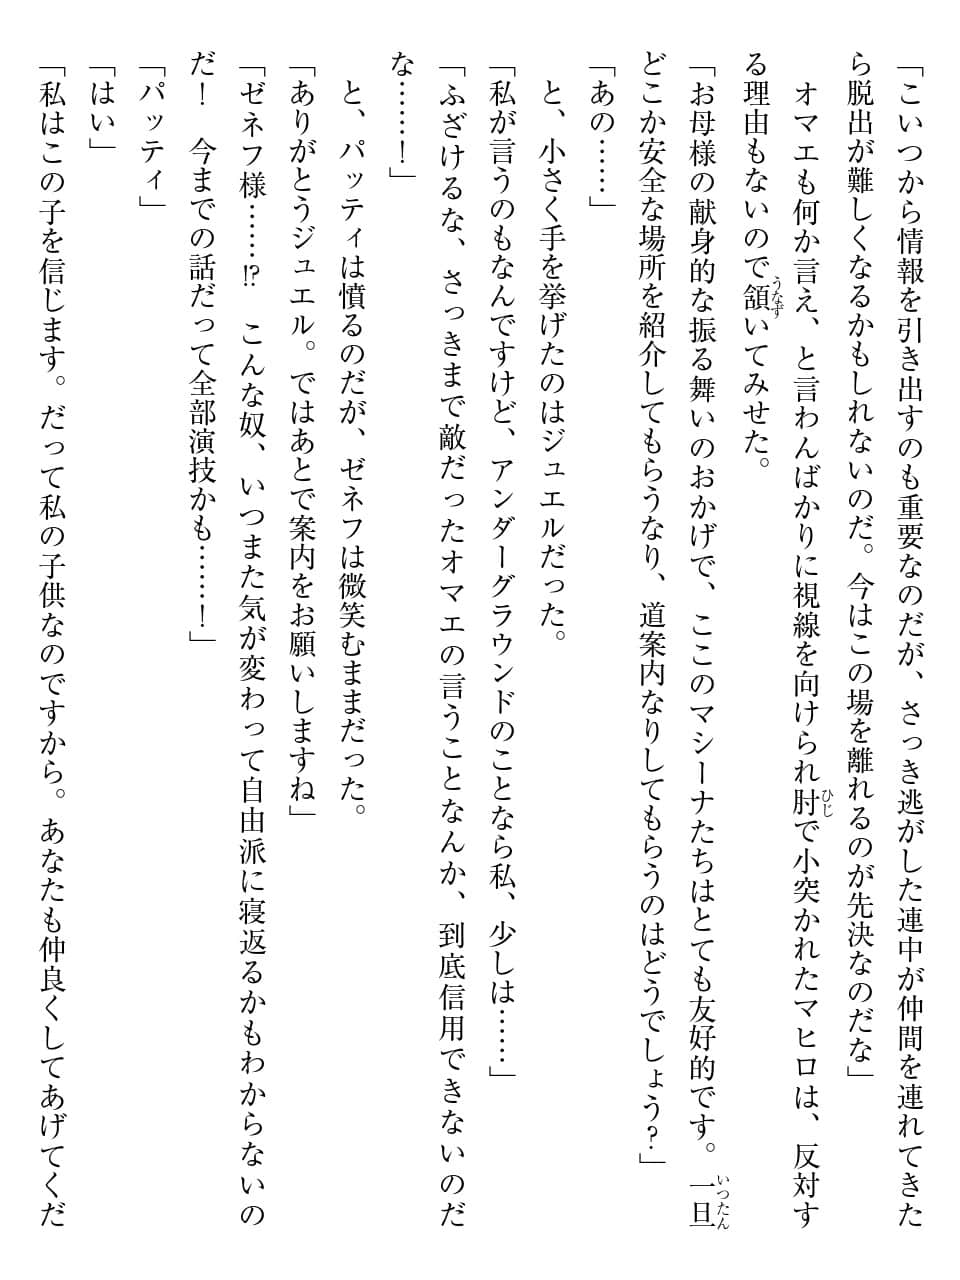 「こいつから情報を引き出すのも重要なのだが、さっき逃がした連中が仲間を連れてきた
ら脱出が難しくなるかもしれないのだ。今はこの場を離れるのが先決なのだな」
　オマエも何か言え、と言わんばかりに視線を向けられ肘で小突かれたマヒロは、反対す
る理由もないので頷いてみせた。
「お母様の献身的な振る舞いのおかげで、ここのマシーナたちはとても友好的です。一旦
どこか安全な場所を紹介してもらうなり、道案内なりしてもらうのはどうでしょう？」
「あの……」
　と、小さく手を挙げたのはジュエルだった。
「私が言うのもなんですけど、アンダーグラウンドのことなら私、少しは……」
「ふざけるな、さっきまで敵だったオマエの言うことなんか、到底信用できないのだ
な……！」
　と、パッティは憤るのだが、ゼネフは微笑むままだった。
「ありがとうジュエル。ではあとで案内をお願いしますね」
「ゼネフ様……⁉　こんな奴、いつまた気が変わって自由派に寝返るかもわからないの
だ！　今までの話だって全部演技かも……！」
「パッティ」
「はい」
「私はこの子を信じます。だって私の子供なのですから。あなたも仲良くしてあげてくだ